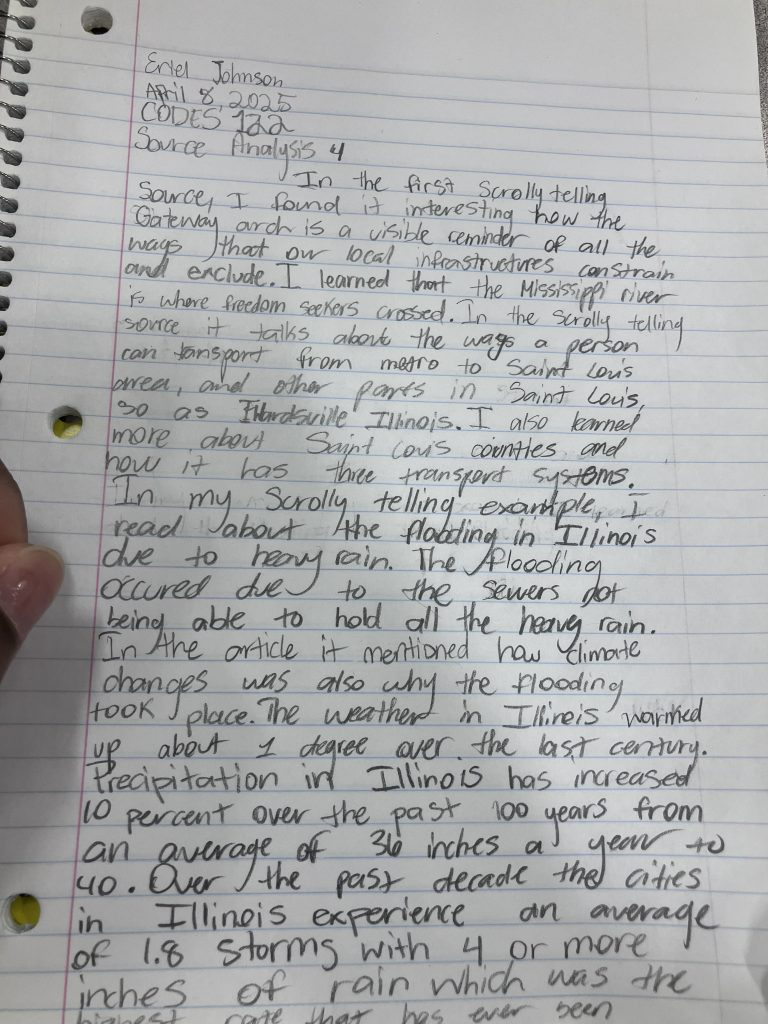 Eriel Johnson
April 8, 2025
CODES 122
Source Analysis 4
In the first Scrolly telling
Source, I found it interesting how the
Gateway arch is a visible reminder of all the
ways that our local infrastructures constrain
and exclude. I learned that the Mississippi river
is where freedom seekers crossed. In the scrolly telling
source it talks about the ways a person
can transport from metro to Saint Louis
area, and other parts in Saint Louis,
so as Illinois. I also learned
more about Saint Louis counties and
how it has three transport systems.
In my Scrolly telling example, I
read about the flooding in Illinois
due to heavy rain. The flooding
occured due to the sewers not
being able to hold all the heavy rain.
In the article it mentioned how climate
changes was also why the flooding
took place. The weather in Illinois warmed
up about 1 degree over the last century.
Precipitation in Illinois has increased
10 percent over the past 100 years from
an average of 36 inches a year to
40. Over the past decade the cities
in Illinois experience an average
of 1.8 storms with 4 or more
inches of rain which was the
highest rate that has ever been